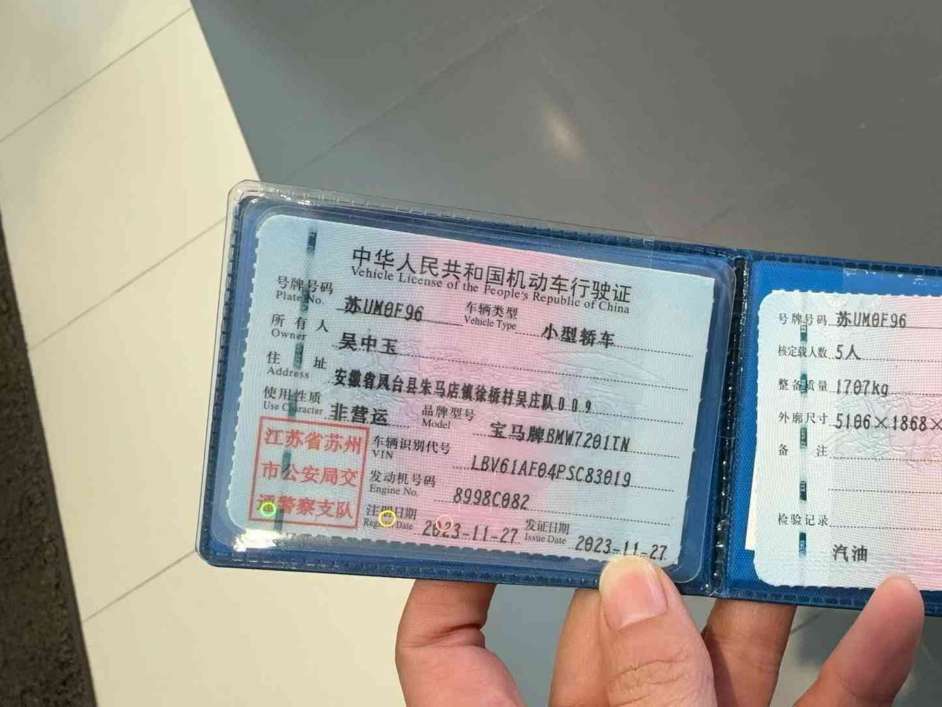 中华人民共和国机动车行驶证
Vehicle License of the People's Republic of China
号牌号码 苏UM0F96 车辆类型 小型轿车
Plate No. Vehicle Type
所有人 吴中玉
Owner
住址 安徽省凤台县朱马店镇徐桥村吴庄队009
Address
使用性质 非营运 品牌型号 宝马牌BMW7201TN
Use Character Model
江苏省苏州
市公安局交
通警察支队
车辆识别代号 LBV61AF04PSC83019
VIN
发动机号码 8998C082
Engine No.
注册日期 2023-11-27 发证日期 2023-11-27
Register Date Issue Date
号牌号码 苏UM0F96
核定载人数 5人
整备质量 1707kg
外廓尺寸 5106×1868×
备注
检验记录
汽油